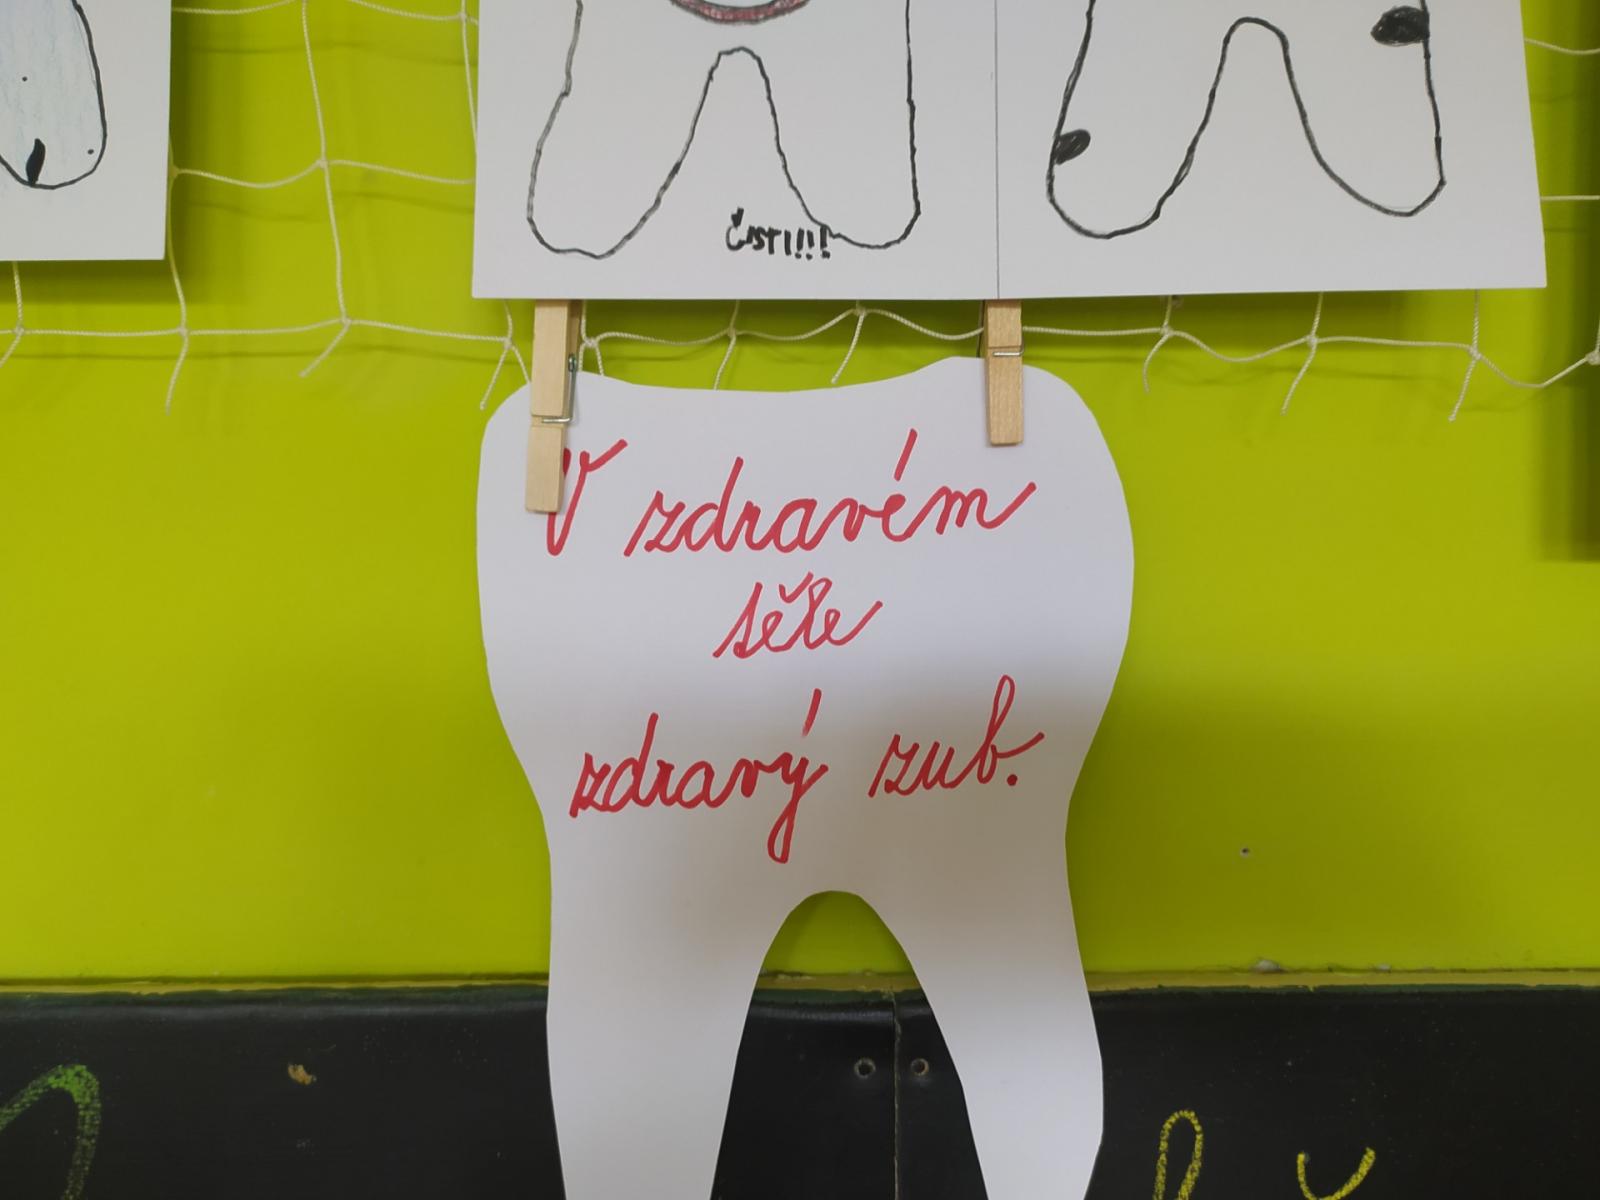 ČISTI!!!
V zdravém
těle
zdravý zub.